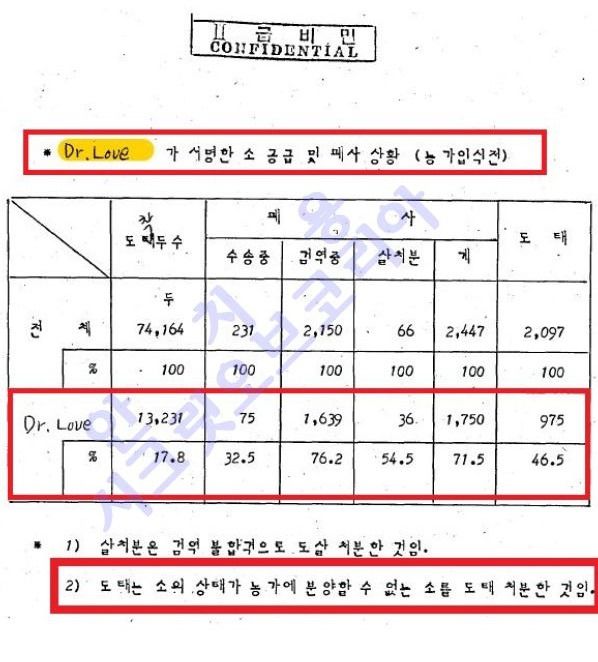 II 급 비 밀
CONFIDENTIAL
* Dr. Love 가 서명한 소 공급 및 폐사 상황 (농가입식전)
착
도 태두수 폐 사 도 태
수송중 검역중 살처분 계
두
전 체 74,164 231 2,150 66 2,447 2,097
% 100 100 100 100 100 100
Dr. Love 13,231 75 1,639 36 1,750 975
% 17.8 32.5 76.2 54.5 71.5 46.5
* 1) 살처분은 검역 불합격으로 도살 처분한 것임.
2) 도태는 소의 상태가 농가에 분양할 수 없는 소를 도태 처분한 것임.
안 치 용
시크릿오브코리아